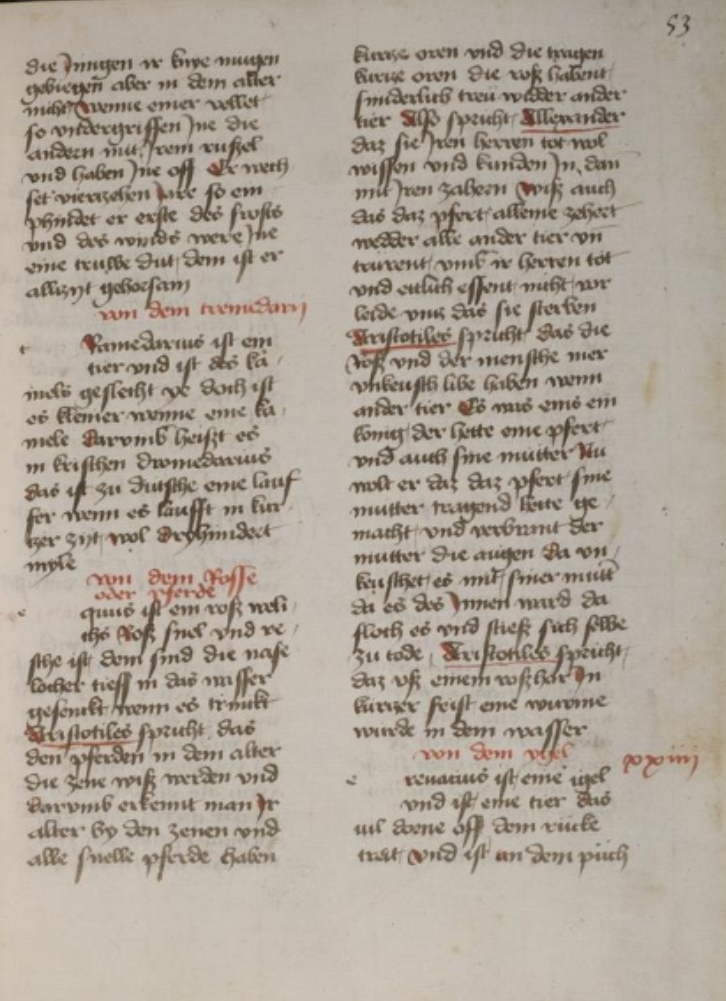 53
die Jungen ir knye mugen
gebiegen aber in dem alter
nicht Wenne einer vellet
so vndergriffen Jne die
andern mit Jrem rußel
vnd haben Jne off Er wech
set vierzehen Jare so em
phindet er erste des frosts
vnd des winds were Jne
eine truwe dut dem ist er
allzyt gehorsam
von dem tremedarij
t Ramedarius ist ein
tier vnd ist des ka
mels geslecht ye doch ist
es kleiner wenne eine ka
mele Darumb heißt es
in krischen dromedarius
das ist zu dutsche eine lauf
fer wenn es laufft in kur
tzer zyt wol Dryhundert
myle
von dem Rosse
oder pferde
e quus ist ein roß weli
chs Roß snel vnd re
sche ist dem sind die nase
locher tieff in das wasser
gesenckt wenn es trinckt
Aristotiles spricht das
den pferden in dem alter
die zene wiß werden vnd
Darumb erkennt man Jr
alter by den zenen vnd
alle snelle pferde haben
kurtze oren vnd die tragen
kurtze oren die roß habent
sunderlich treu widder ander
tier Also spricht Allexander
daz sie Jren herren tot wol
wissen vnd kunden Jn dan
mit Jren zahern Wiß auch
das daz pfert alleine zehert
wedder alle ander tier vn
trurent vmb ir herren tot
vnd ettlich essent nicht vor
leide vntz das sie sterben
Aristotiles spricht das die
Roß vnd der mensche mer
vnkeusch libe haben wenn
ander tier Es was eins ein
konig der hette eine pfert
vnd auch sine mutter Nu
wolt er daz daz pfert sine
mutter tragend hette ge
macht vnd verbant der
mutter die augen Da vn
keuschet es mit siner mutt
da es des Jnnen ward da
floch es vnd stieß sich selbe
zu tode Aristotiles spricht
daz vß einem roßhar Jn
kurtzer frist eine wurme
wurde in dem wasser
von dem ygel
xxiiij
e renacius ist eine igel
vnd ist eine tier das
vil dorne off dem rucke
treit vnd ist an dem puch